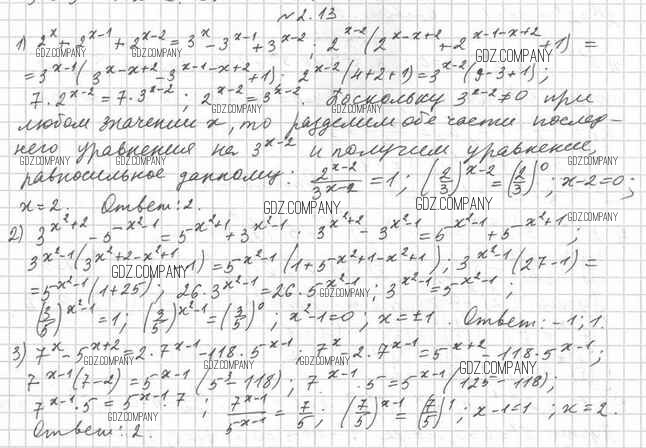 №2.13
1) 2^x + 2^(x-1) + 2^(x-2) = 3^x - 3^(x-1) + 3^(x-2); 2^(x-2)(2^(x-x+2) + 2^(x-1-x+2) + 1) =
= 3^(x-1)(3^(x-x+2) - 3^(x-1-x+2) + 1); 2^(x-2)(4+2+1) = 3^(x-2)(9-3+1);
7·2^(x-2) = 7·3^(x-2); 2^(x-2) = 3^(x-2). Поскольку 3^(x-2) ≠ 0 при
любом значении x, то разделим обе части послед-
него уравнения на 3^(x-2) и получим уравнение,
равносильное данному: 2^(x-2)/3^(x-2) = 1; (2/3)^(x-2) = (2/3)^0; x-2=0;
x=2. Ответ: 2.
2) 3^(x²+2) - 5^(x²-1) = 5^(x²+1) + 3^(x²-1); 3^(x²+2) - 3^(x²-1) = 5^(x²-1) + 5^(x²+1);
3^(x²-1)(3^(x²+2-x²+1) - 1) = 5^(x²-1)(1 + 5^(x²+1-x²+1)); 3^(x²-1)(27-1) =
= 5^(x²-1)(1+25); 26·3^(x²-1) = 26·5^(x²-1); 3^(x²-1) = 5^(x²-1);
(3/5)^(x²-1) = 1; (3/5)^(x²-1) = (3/5)^0; x²-1=0; x=±1. Ответ: -1; 1.
3) 7^x - 5^(x+2) = 2·7^(x-1) - 118·5^(x-1); 7^x - 2·7^(x-1) = 5^(x+2) - 118·5^(x-1);
7^(x-1)(7-2) = 5^(x-1)(5³-118); 7^(x-1)·5 = 5^(x-1)(125-118);
7^(x-1)·5 = 5^(x-1)·7; 7^(x-1)/5^(x-1) = 7/5; (7/5)^(x-1) = (7/5)^1; x-1=1; x=2.
Ответ: 2.
GDZ.COMPANY